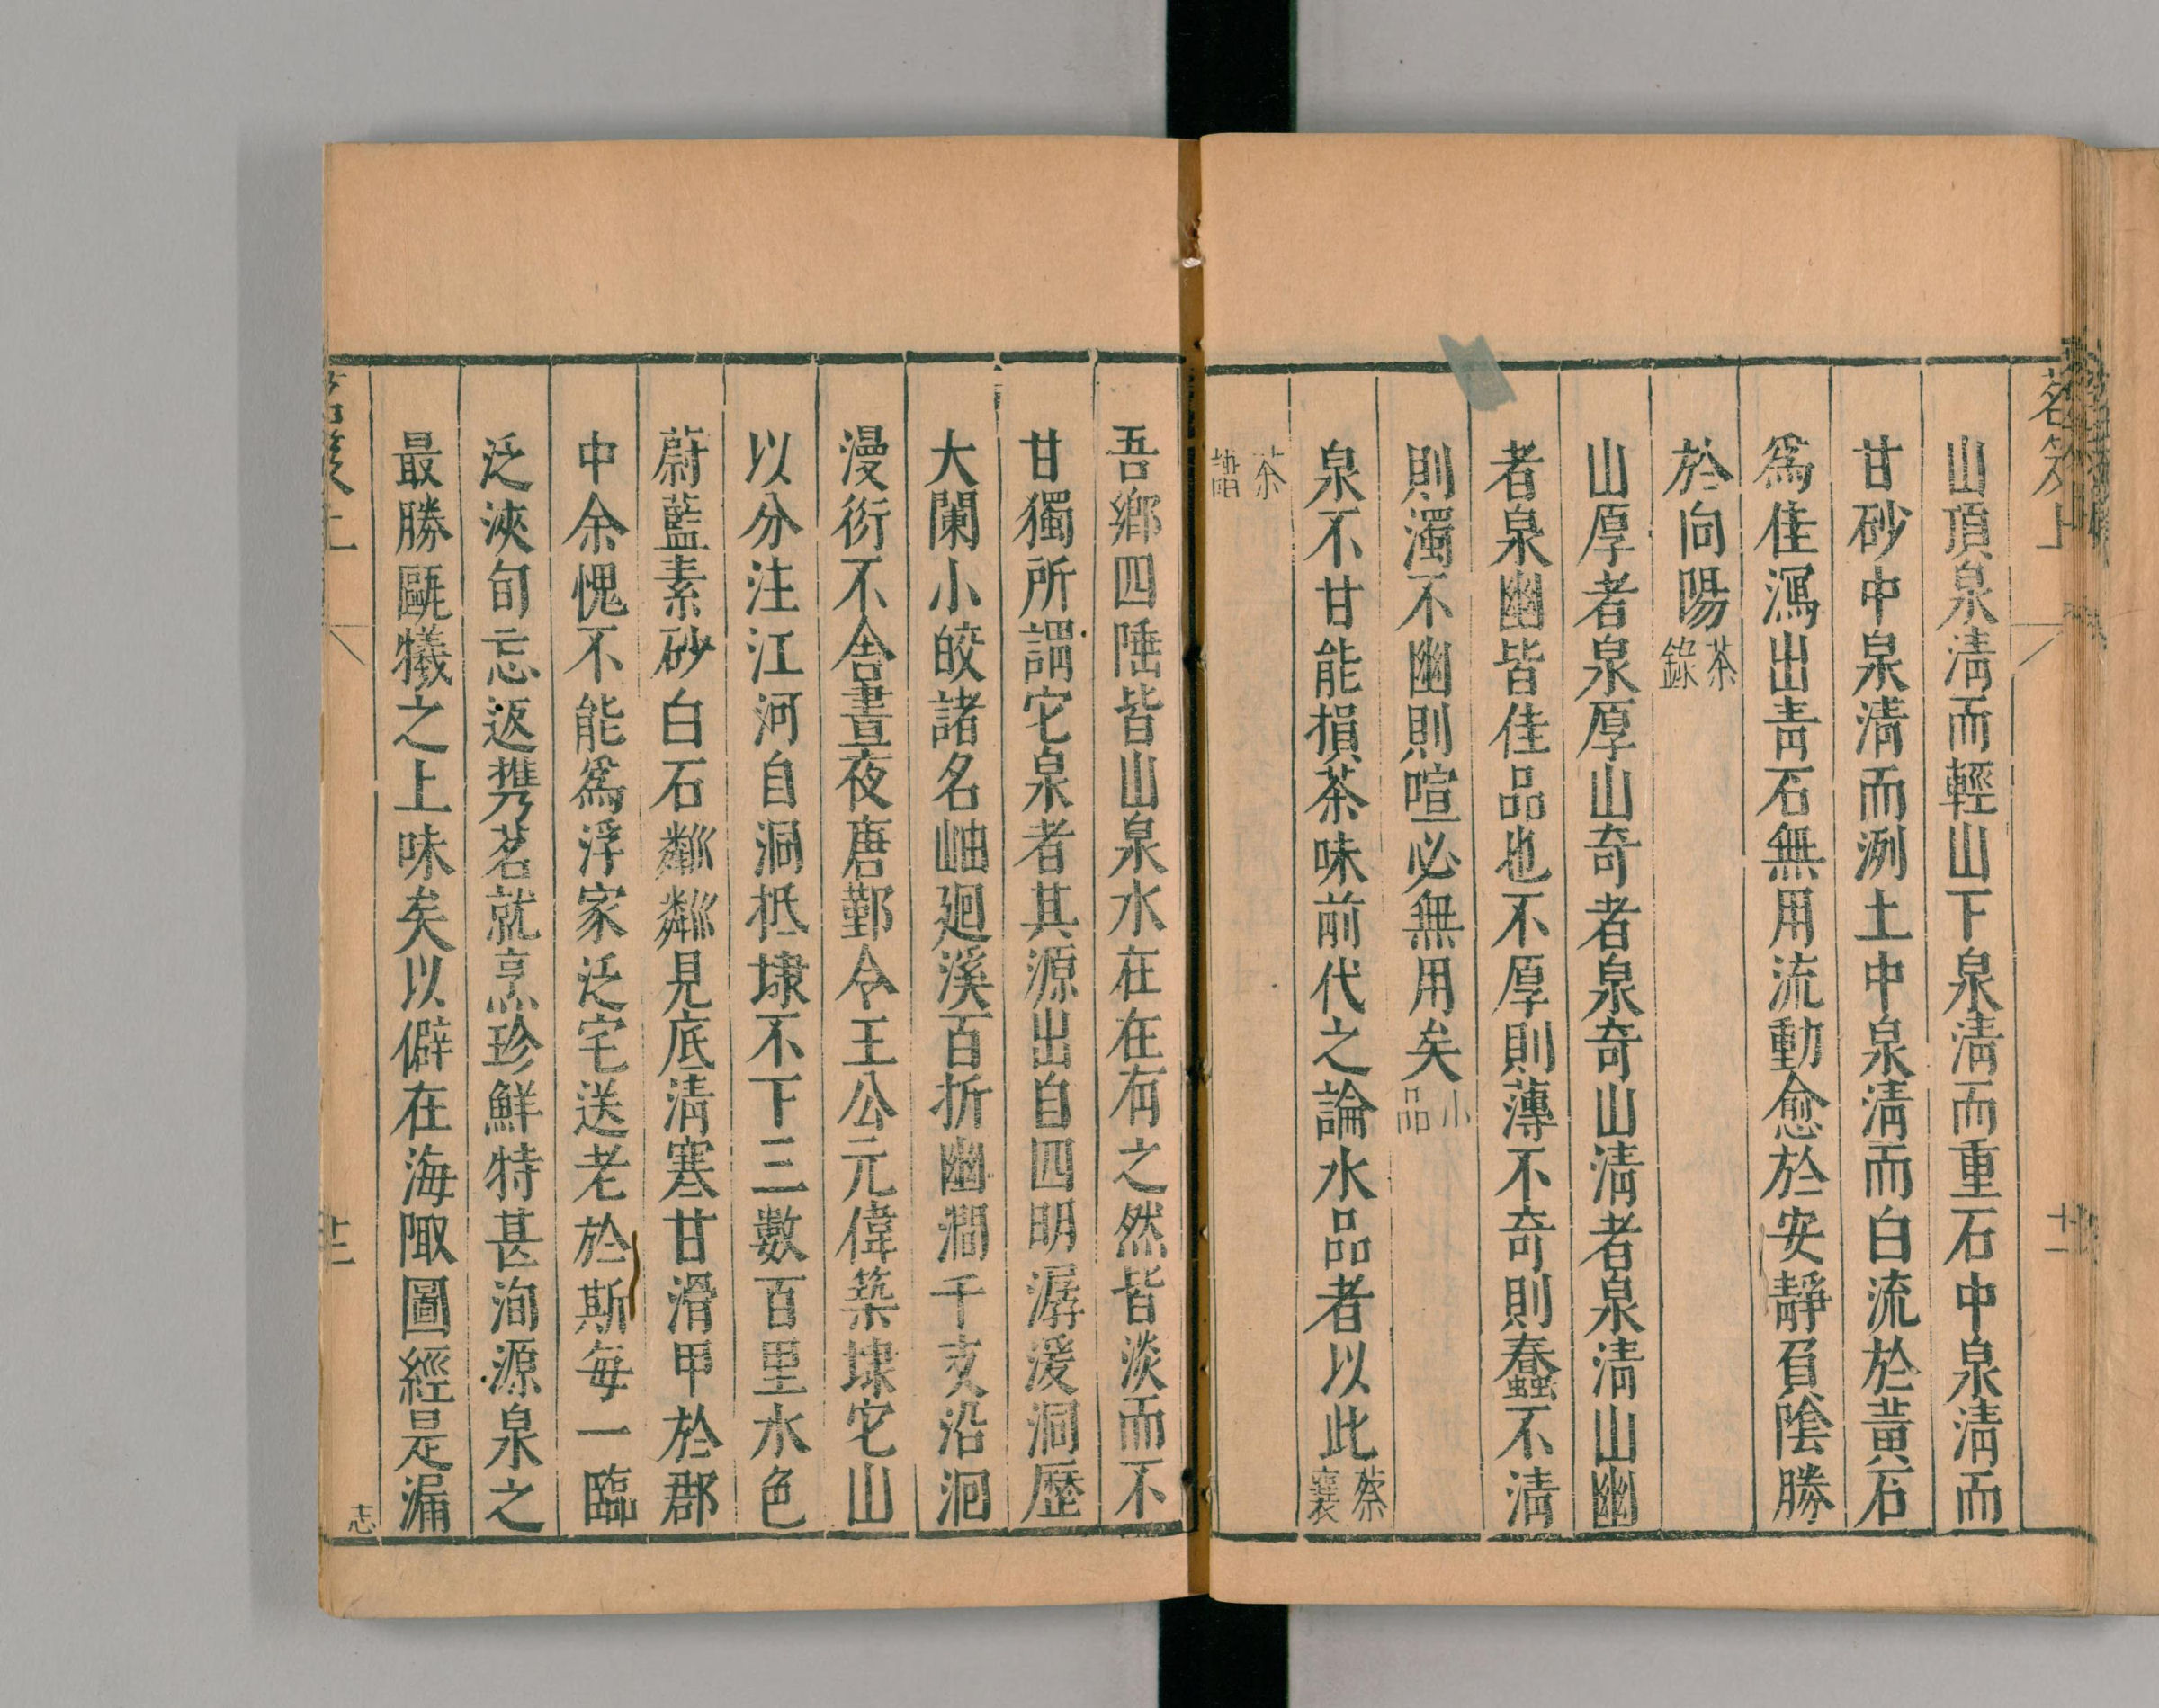 茗笈上
十一
山頂泉淸而輕山下泉淸而重石中泉淸而
甘砂中泉淸而洌土中泉淸而白流於黃石
爲佳瀉出靑石無用流動愈於安靜負陰勝
於向陽茶錄
山厚者泉厚山奇者泉奇山淸者泉淸山幽
者泉幽皆佳品也不厚則薄不奇則蠢不淸
則濁不幽則喧必無用矣小品
泉不甘能損茶味前代之論水品者以此蔡襄
茶譜
吾鄉四陲皆山泉水在在有之然皆淡而不
甘獨所謂它泉者其源出自四明潺湲洞歷
大闌小皎諸名岫廻溪百折幽澗千支沿洄
漫衍不舍晝夜唐鄞令王公元偉築埭它山
以分注江河自洞抵埭不下三數百里水色
蔚藍素砂白石粼粼見底淸寒甘滑甲於郡
中余愧不能爲浮家泛宅送老於斯每一臨
泛浹旬忘返携茗就烹珍鮮特甚洵源泉之
最勝甌犧之上味矣以僻在海陬圖經是漏
茗笈上
十二
志